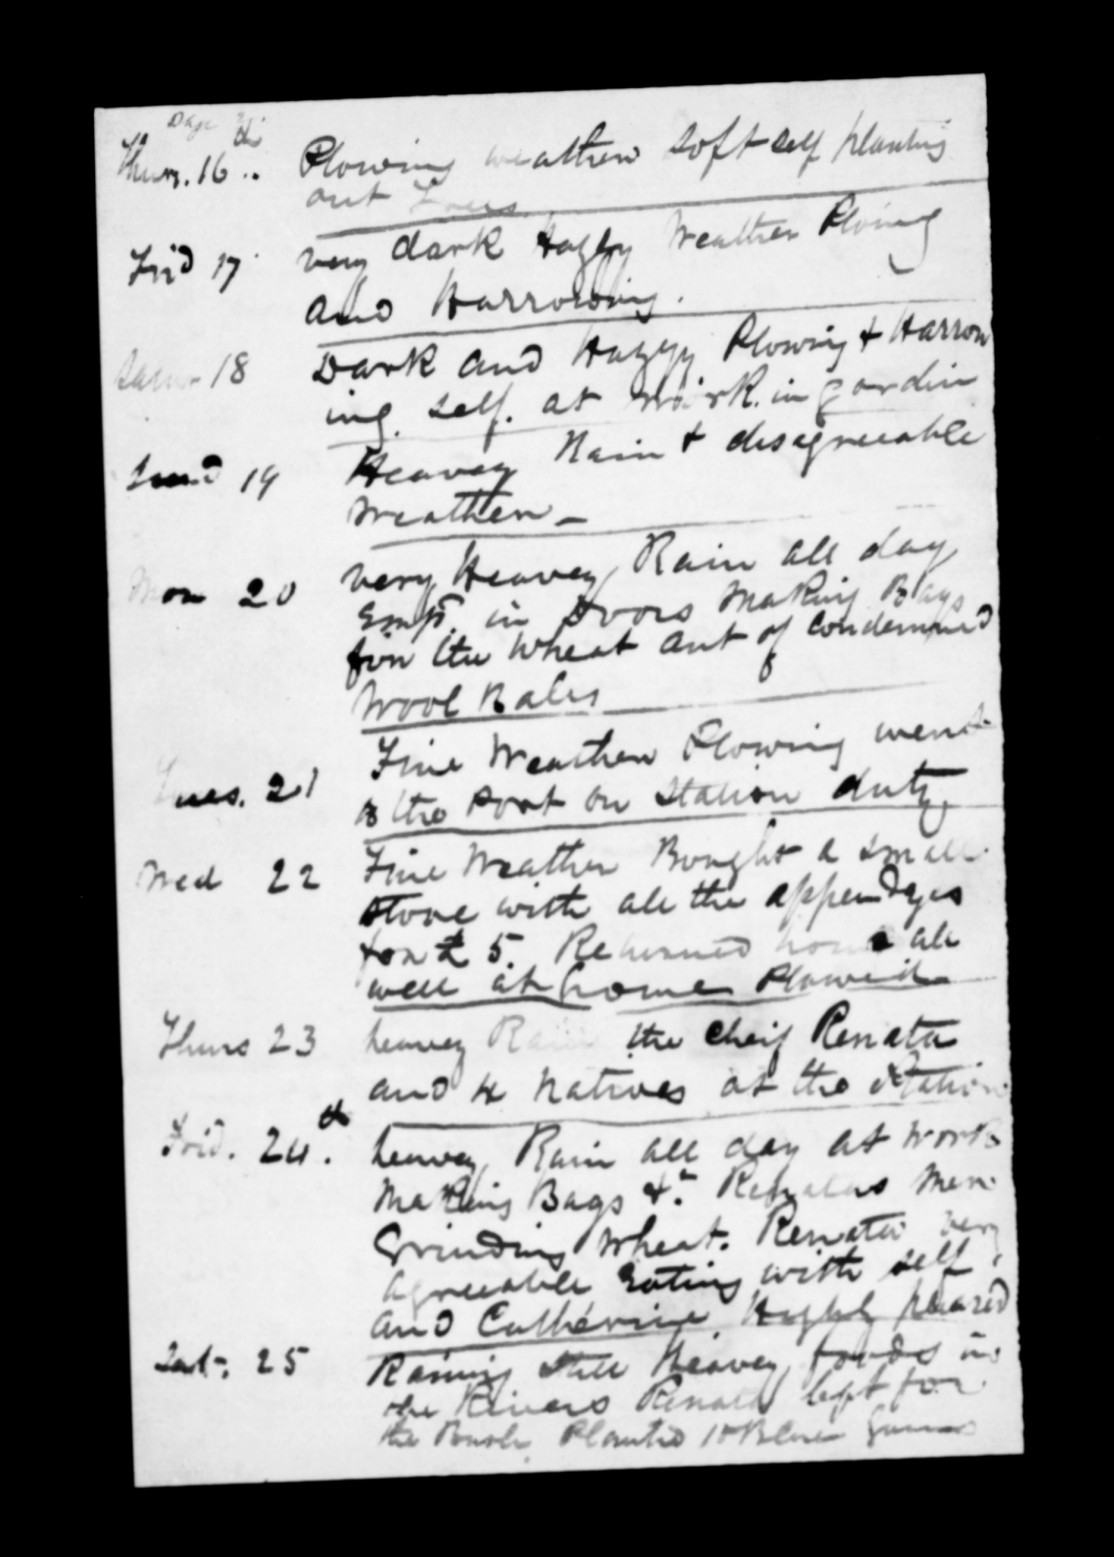 Days
Thurs. 16 .. Plowing weather soft self planting
out Trees
Frid 17 very dark Hazey Weather Ploing
and Harrowing.
Satur 18 Dark and Hazyy Plowing & Harrow
ing. self. at work. in gardin
Sund 19 Heavey Rain & disagreeable
Weather _
Mon 20 very Heavey Rain all day
Emp. in Doors Making Bags
for the Wheat out of Condemned
Wool Bales
Tues. 21 Fine Weather Plowing went
to the Port on Station duty
Wed 22 Fine Weather Bought a small
Stove with all the appendges
for £ 5. Returned home all
well at home Plowed
Thurs 23 heavey Rain the Cheif Renata
and 4 Natives at the Station
Frid. 24th. heavey Rain all day at Work
Making Bags &c Renatas Men
Grinding Wheat. Renata very
agreeable Eating with self
and Catherine Highly pleased
Sat. 25 Raining Still Heavey floods in
the Rivers Renata left for
the Bush Planted 10 Blue Gums